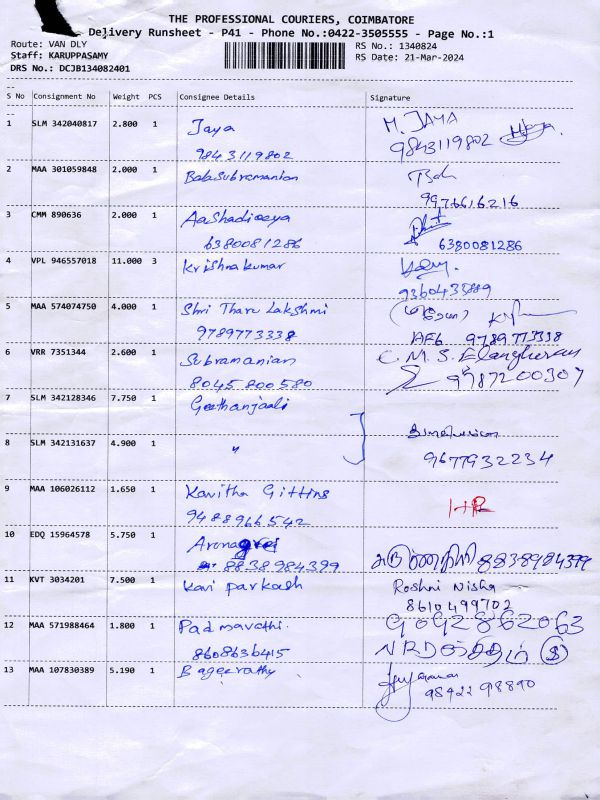 THE PROFESSIONAL COURIERS, COIMBATORE
Delivery Runsheet - P41 - Phone No.:0422-3505555 - Page No.:1
Route: VAN DLY
RS No.: 1340824
Staff: KARUPPASAMY
RS Date: 21-Mar-2024
DRS No.: DCJB134082401
S No Consignment No Weight PCS Consignee Details Signature
1 SLM 342040817 2.800 1 Jaya M. JAYA
9843119802 9843119802
2 MAA 301059848 2.000 1 BalaSubramanian
9976616216
3 CMM 890636 2.000 1 Aashadieeya
6380081286 6380081286
4 VPL 946557018 11.000 3 Krishnakumar
9360433889
5 MAA 574074750 4.000 1 Shri Tharu Lakshmi
9789773338 9789773338
6 VRR 7351344 2.600 1 Subramanian C. M. S. Elangkeran
8045800580 9787200307
7 SLM 342128346 7.750 1 Geethanjaali
8 SLM 342131637 4.900 1 "
9677932234
9 MAA 106026112 1.650 1 Kavitha Gittins
9488966542
10 EDQ 15964578 5.750 1 8838984399
8838984399
11 KVT 3034201 7.500 1 Kavi parkash Roshni Nisha
8610499702
12 MAA 571988464 1.800 1 Padmavathi. 9092862063
8608636415
13 MAA 107830389 5.190 1 Bageerathy
98422 98890